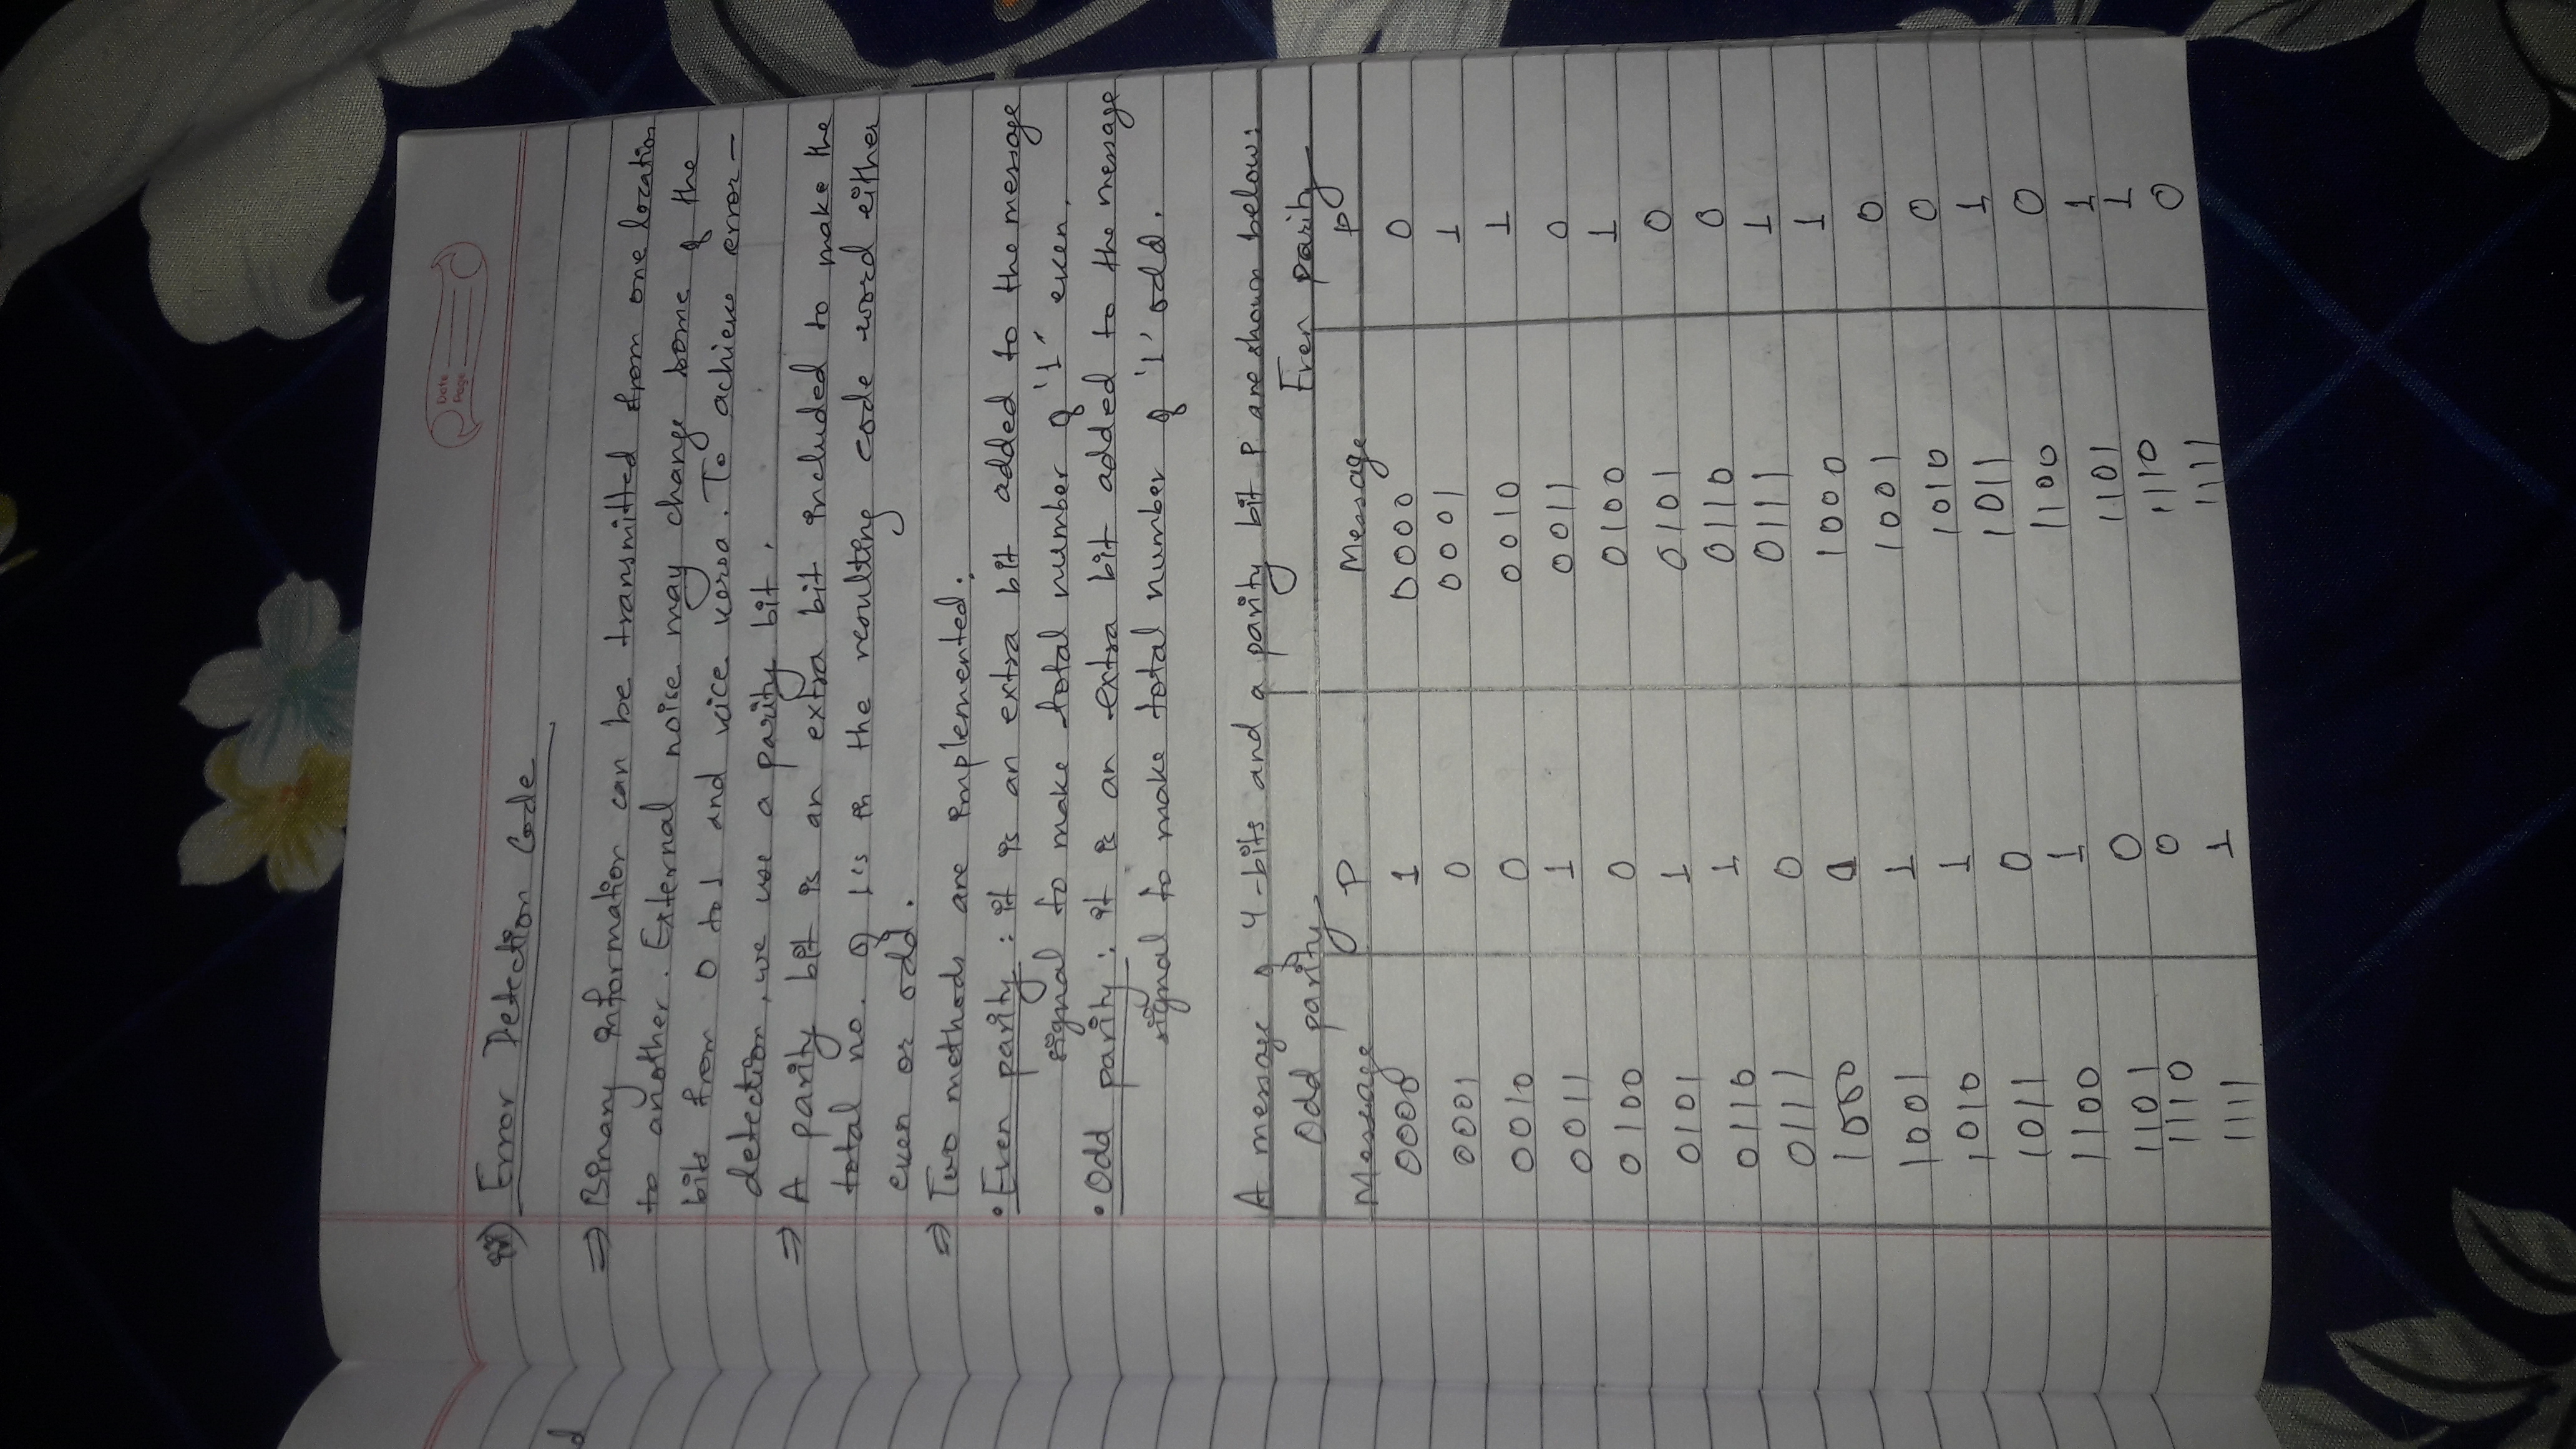 Date
Page
Error Detection Code
d
⇒ Binary information can be transmitted from one location
to another. External noise may change some of the
bits from 0 to 1 and vice versa. To achieve error-
detection, we use a parity bit.
⇒ A parity bit is an extra bit included to make the
total no. of 1's in the resulting code word either
even or odd.
⇒ Two methods are implemented:
• Even parity: it is an extra bit added to the message
signal to make total number of '1' even.
• Odd parity: it is an extra bit added to the message
signal to make total number of '1' odd.
A message of 4-bits and a parity bit P are shown below:
Odd parity Even parity
Message P Message P
0000 1 0000 0
0001 0 0001 1
0010 0 0010 1
0011 1 0011 0
0100 0 0100 1
0101 1 0101 0
0110 1 0110 0
0111 0 0111 1
1000 0 1000 1
1001 1 1001 0
1010 1 1010 0
1011 0 1011 1
1100 1 1100 0
1101 0 1101 1
1110 0 1110 1
1111 1 1111 0